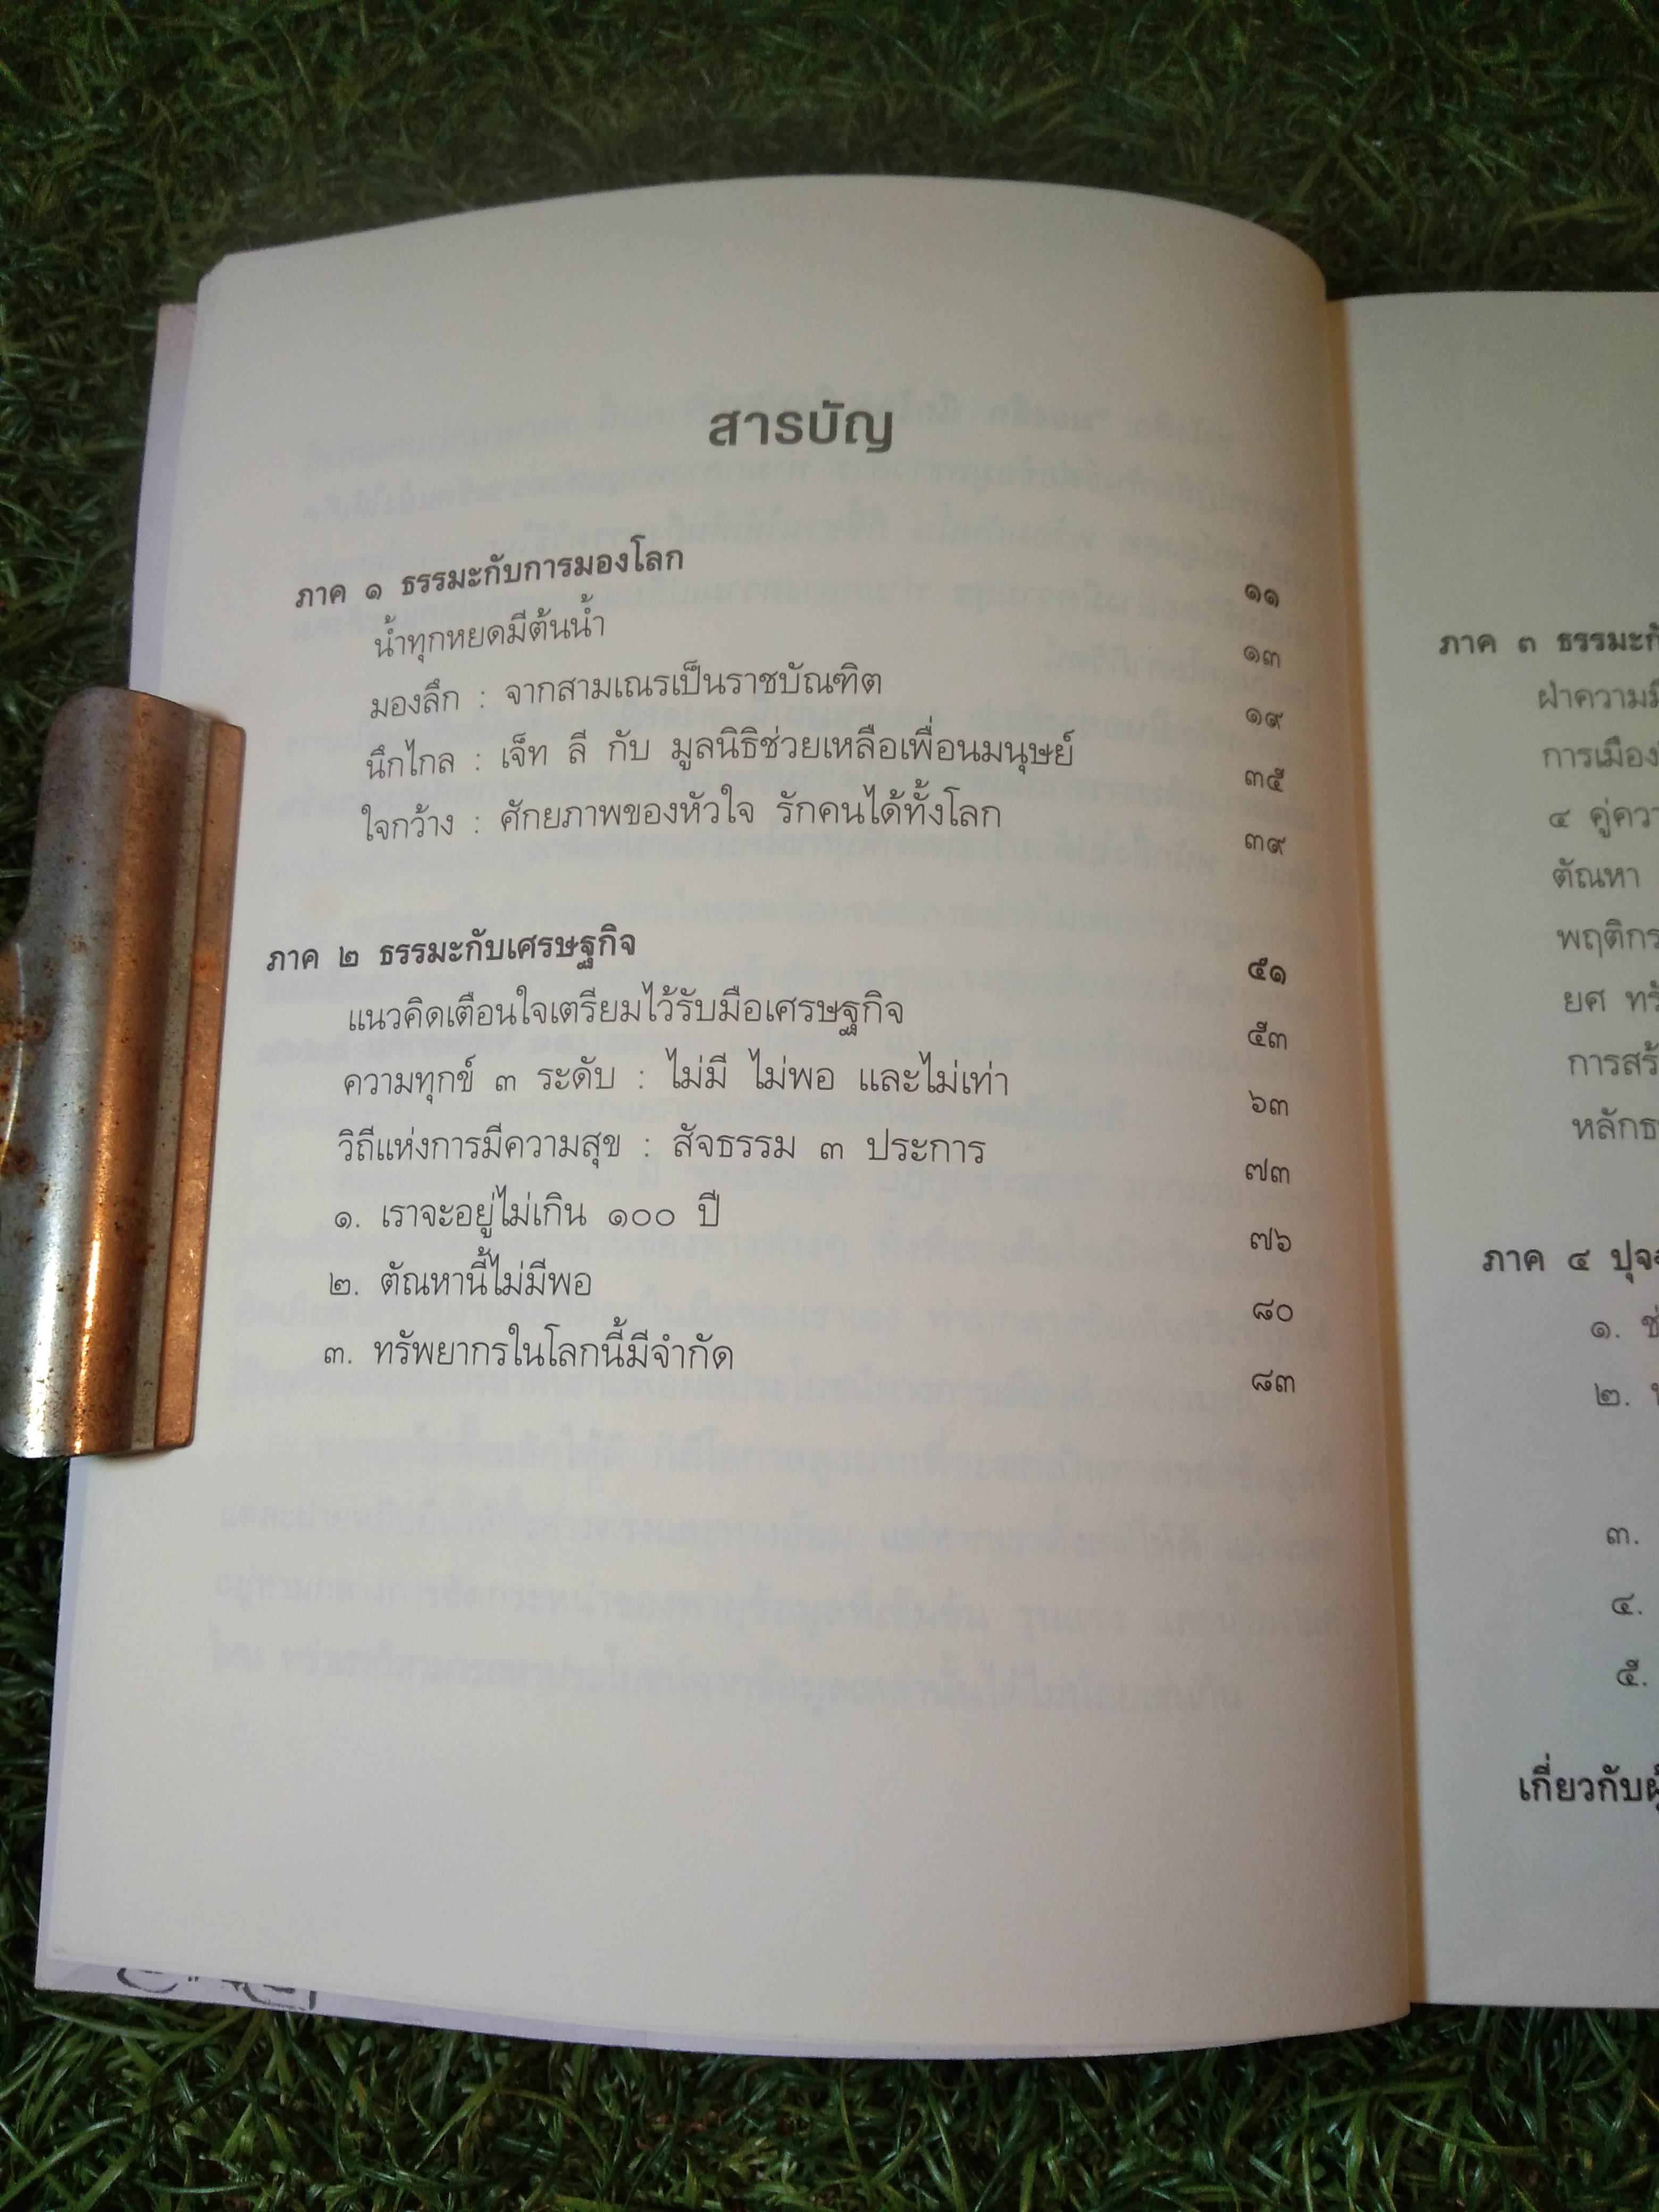 สารบัญ
ภาค ๑ ธรรมะกับการมองโลก ๑๑
น้ำทุกหยดมีต้นน้ำ ๑๓
มองลึก : จากสามเณรเป็นราชบัณฑิต ๑๙
นึกไกล : เจ็ท ลี กับ มูลนิธิช่วยเหลือเพื่อนมนุษย์ ๓๕
ใจกว้าง : ศักยภาพของหัวใจ รักคนได้ทั้งโลก ๓๙
ภาค ๒ ธรรมะกับเศรษฐกิจ ๕๑
แนวคิดเตือนใจเตรียมไว้รับมือเศรษฐกิจ ๕๓
ความทุกข์ ๓ ระดับ : ไม่มี ไม่พอ และไม่เท่า ๖๓
วิถีแห่งการมีความสุข : สัจธรรม ๓ ประการ ๗๓
๑. เราจะอยู่ไม่เกิน ๑๐๐ ปี ๗๖
๒. ตัณหานี้ไม่มีพอ ๘๐
๓. ทรัพยากรในโลกนี้มีจำกัด ๘๓
ภาค ๓ ธรรมะกั
ฝ่าความมื
การเมือง
๔ คู่ควา
ตัณหา
พฤติกร
ยศ ทรั
การสร้
หลักธ
ภาค ๔ ปุจฉ
๑. ช่
๒.
๓.
๔.
๕.
เกี่ยวกับผู้